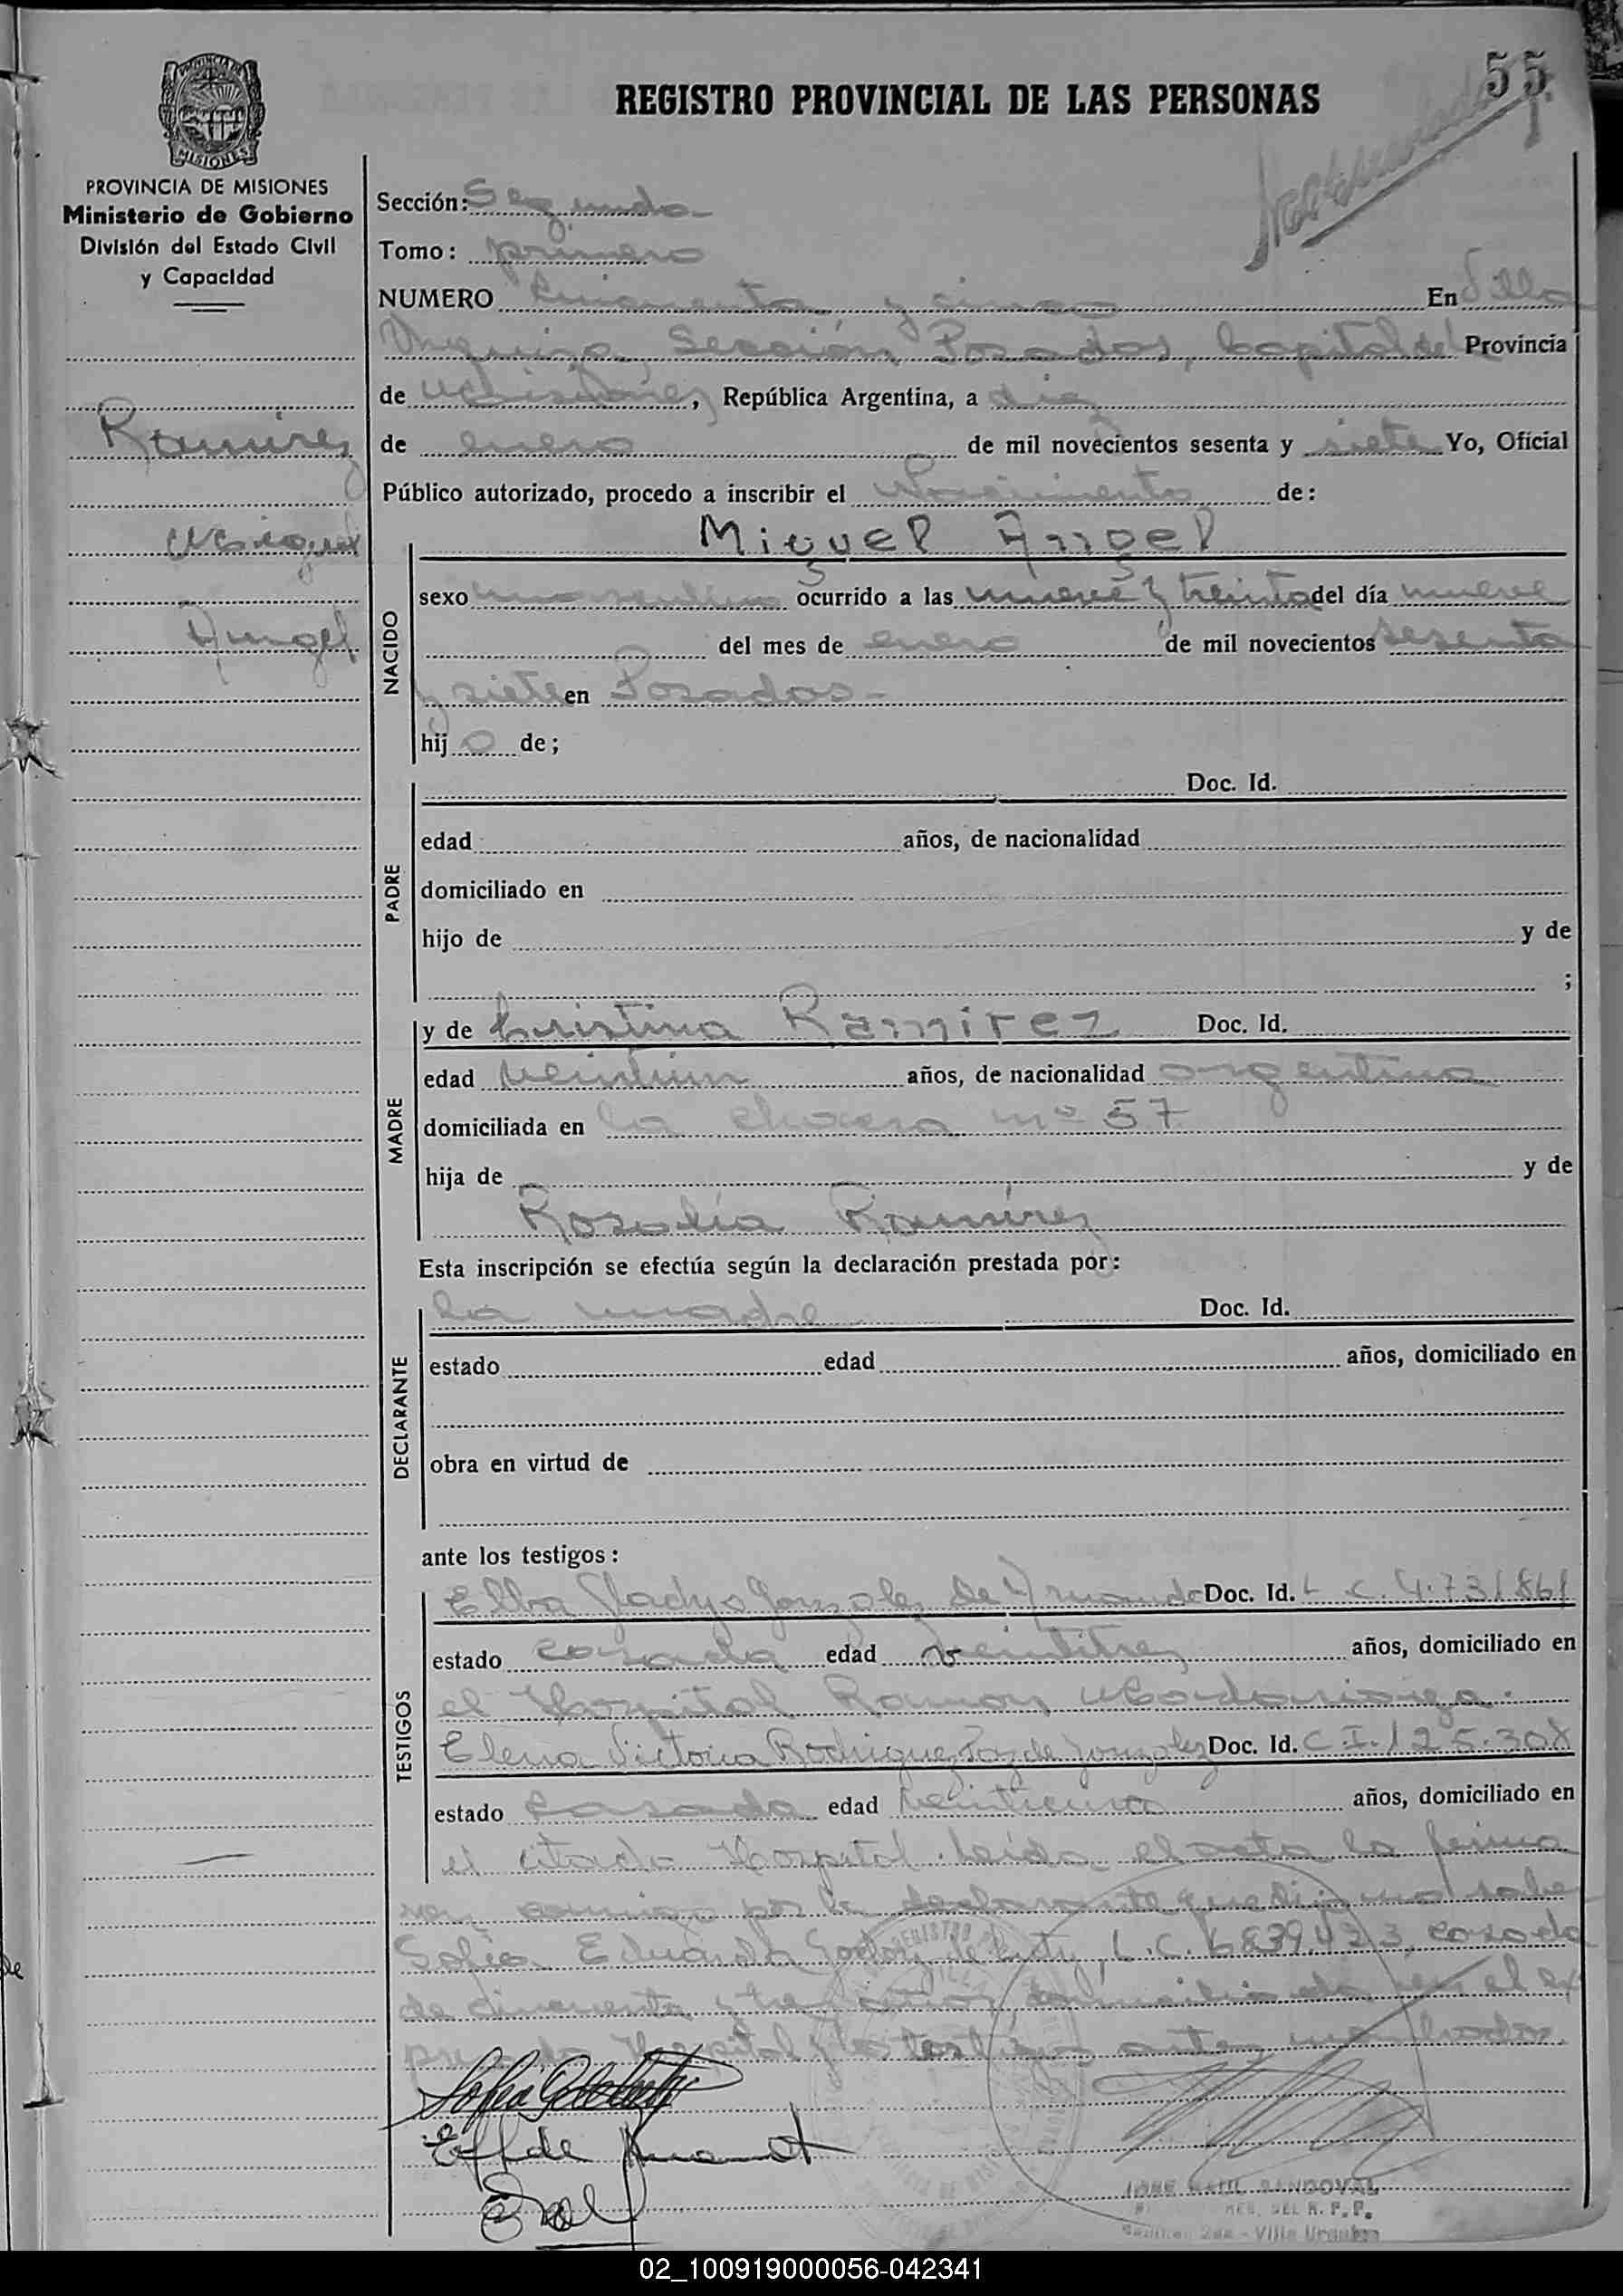 55
REGISTRO PROVINCIAL DE LAS PERSONAS
MISIONES
PROVINCIA DE MISIONES
Ministerio de Gobierno
División del Estado Civil
y Capacidad
Ramirez
Miguel
Angel
Sección: Segunda
Tomo: primero
NUMERO Cincuenta y cinco En Villa
Urquiza, Sección Posadas, Capital de Provincia
de Misiones, República Argentina, a diez
de enero de mil novecientos sesenta y siete Yo, Oficial
Público autorizado, procedo a inscribir el Nacimiento de:
Miguel Angel
NACIDO
sexo masculino ocurrido a las nueve y treinta del día nueve
del mes de enero de mil novecientos sesenta
y siete en Posadas-
hijo de;
PADRE
Doc. Id.
edad años, de nacionalidad
domiciliado en
hijo de y de
;
MADRE
y de Cristina Ramirez Doc. Id.
edad veintiun años, de nacionalidad argentina
domiciliada en la chacra nº 57
hija de y de
Rosalía Ramirez
Esta inscripción se efectúa según la declaración prestada por:
DECLARANTE
la madre Doc. Id.
estado edad años, domiciliado en
obra en virtud de
ante los testigos:
TESTIGOS
Elba Gladys Gonzalez de Doc. Id. L.C. 4.731861
estado casada edad veintitres años, domiciliado en
el Hospital Ramon Madariaga.
Elena Victoria Rodriguez de Gonzalez Doc. Id. C.I. 125.308
estado casada edad años, domiciliado en
el citado Hospital. Leída el acta la firma
conmigo por la declarante que dijo no saber
Sofía Eduarda de L.C. 6839.423, casada
de cincuenta y tres años, domiciliada en el ex
presado Hospital y los testigos antes nombrados
JOSE RAUL SANDOVAL
DEL R.P.P.
2da - Villa Urquiza
02_100919000056-042341